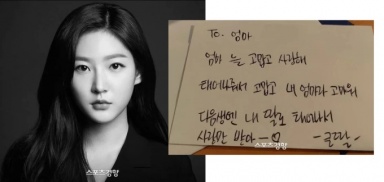 To. 엄마
엄마 늘 고맙고 사랑해
태어나줘서 고맙고 내 엄마라 고마워
다음생엔 내 딸로 태어나서
사랑만 받아 ㅡ♡
-큰딸-
스포츠경향
스포츠경향